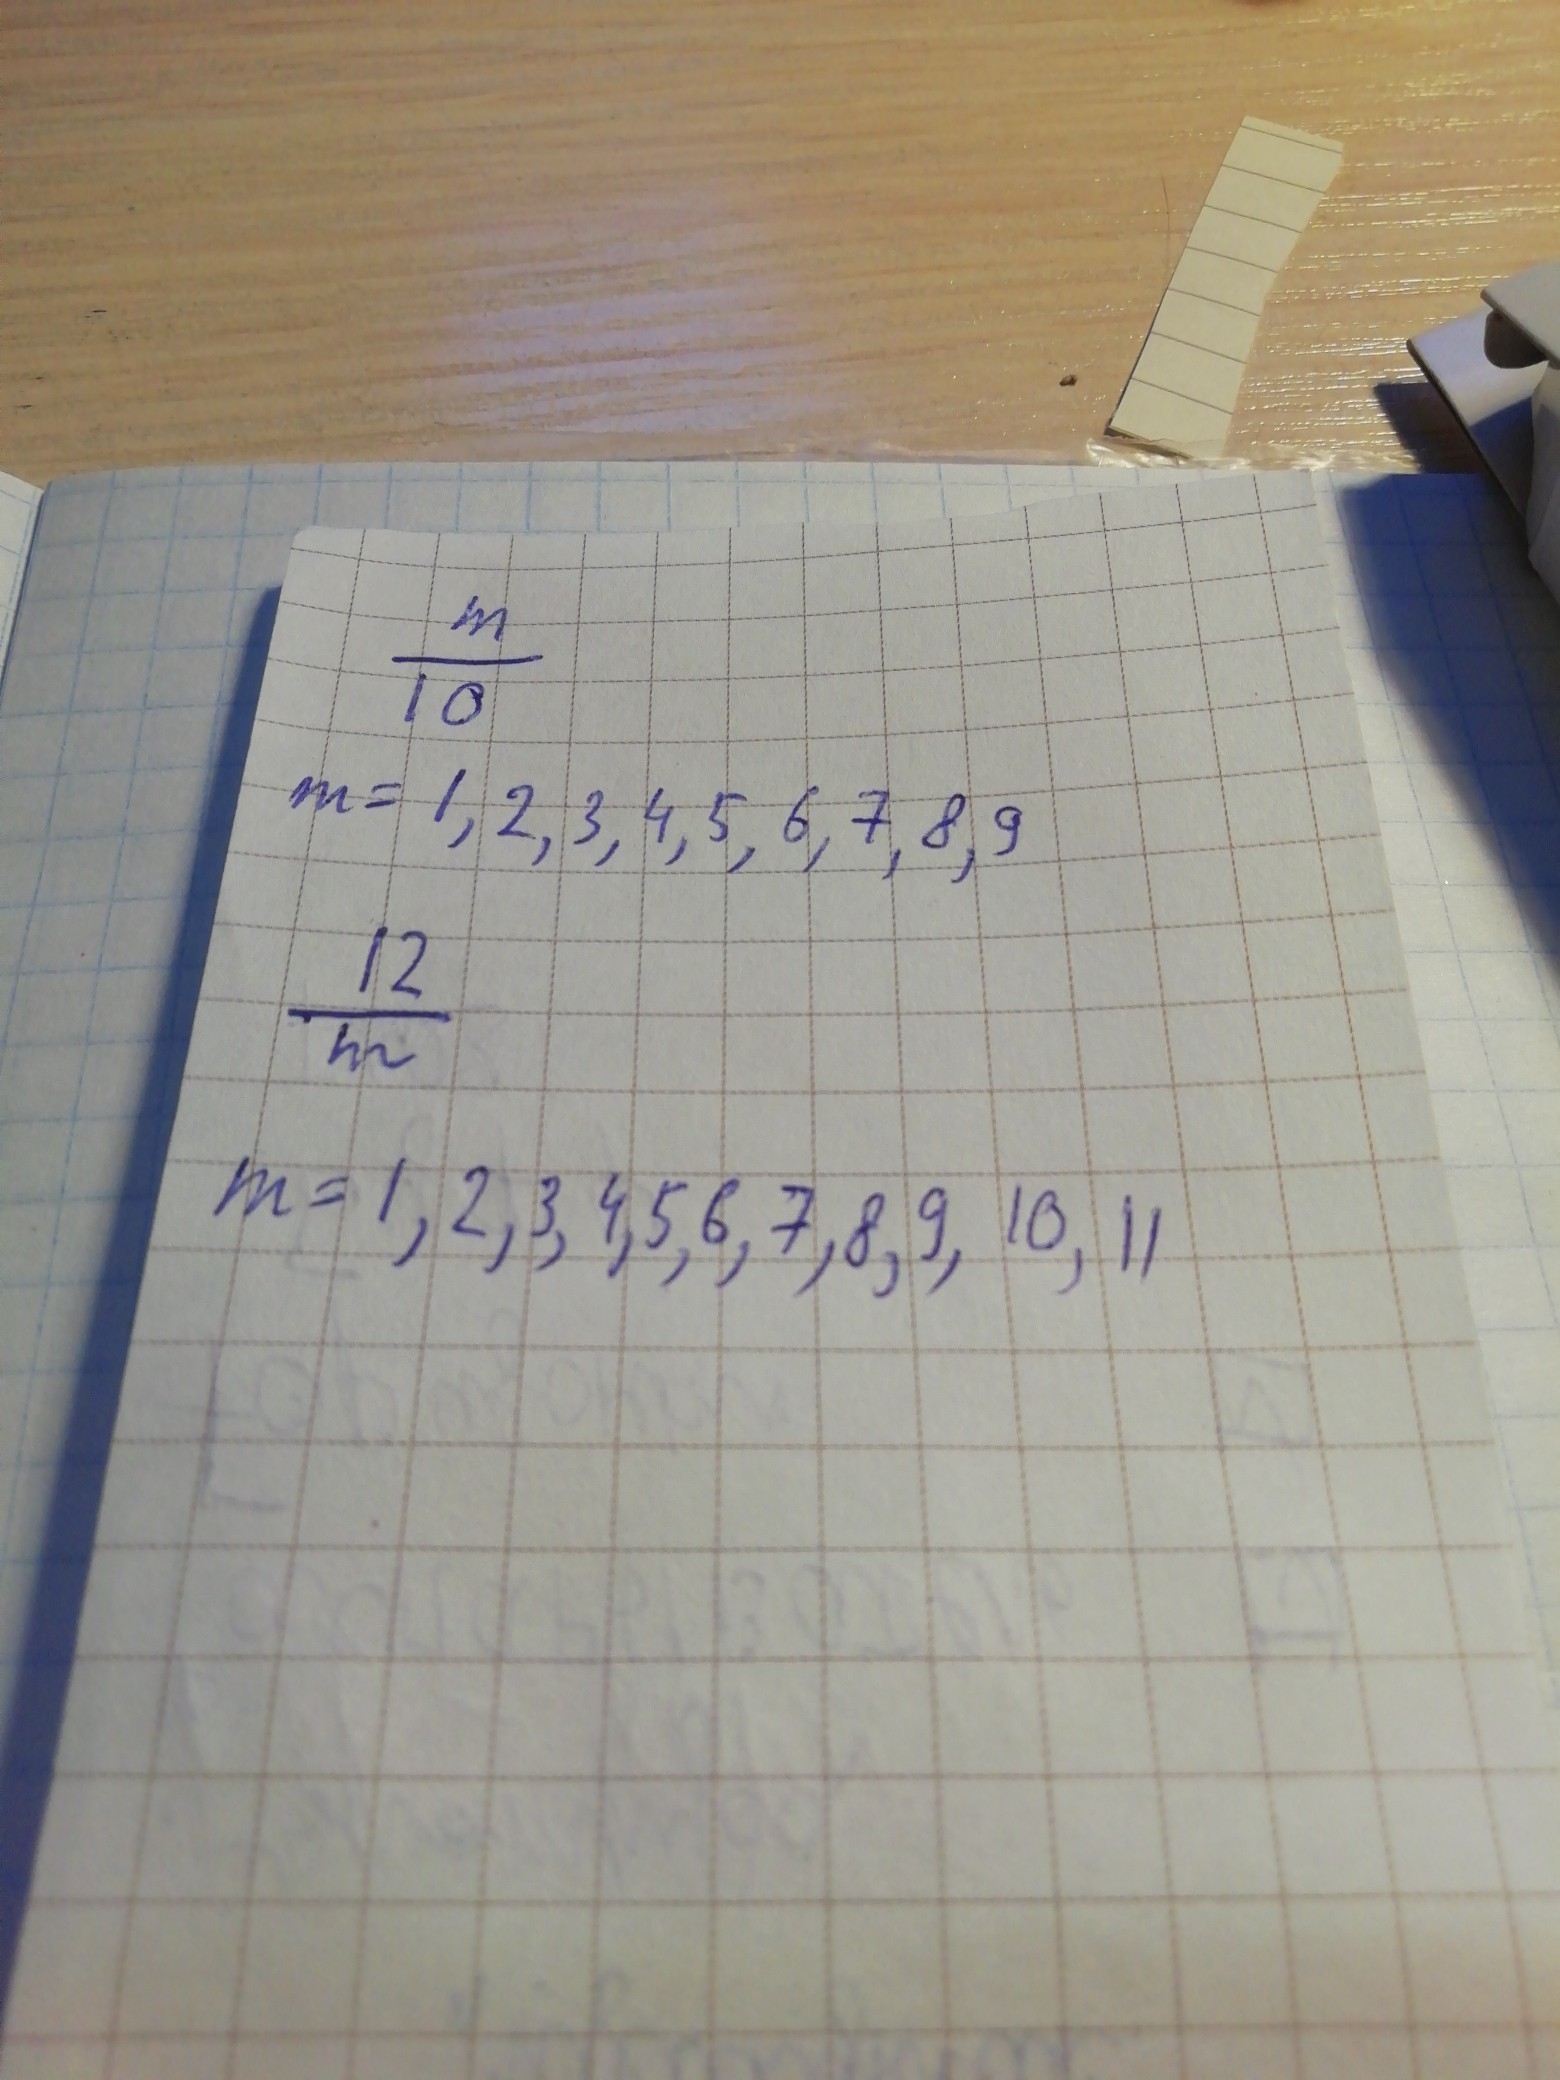 m
10
m = 1, 2, 3, 4, 5, 6, 7, 8, 9
12
m
m = 1, 2, 3, 4, 5, 6, 7, 8, 9, 10, 11